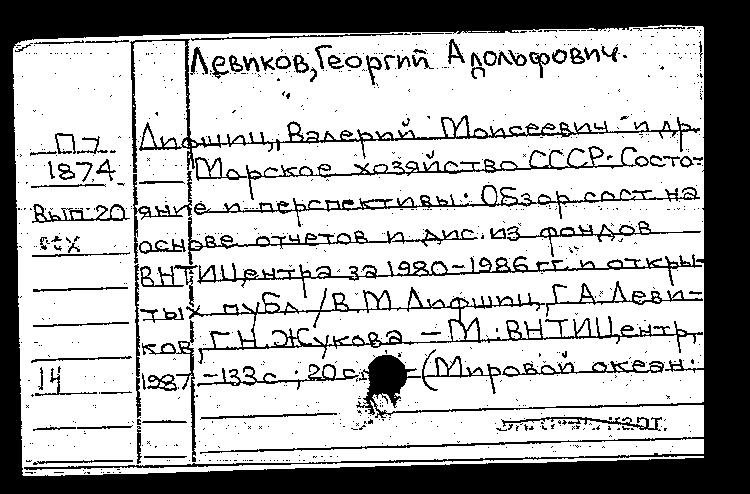 Левиков, Георгий Адольфович.
П7 Лифшиц, Валерий Моисеевич и др.
1874 Морское хозяйство СССР: Состо-
Вып. 20 яние и перспективы: Обзор сост. на
основе отчетов и дис. из фондов
ВНТИЦентра за 1980-1986 гг. и откры-
тых публ. / В.М. Лифшиц, Г.А. Леви-
ков, Г.Н. Жукова. - М.: ВНТИЦентр,
14 1987. - 133 с.; 20 см - (Мировой океан: